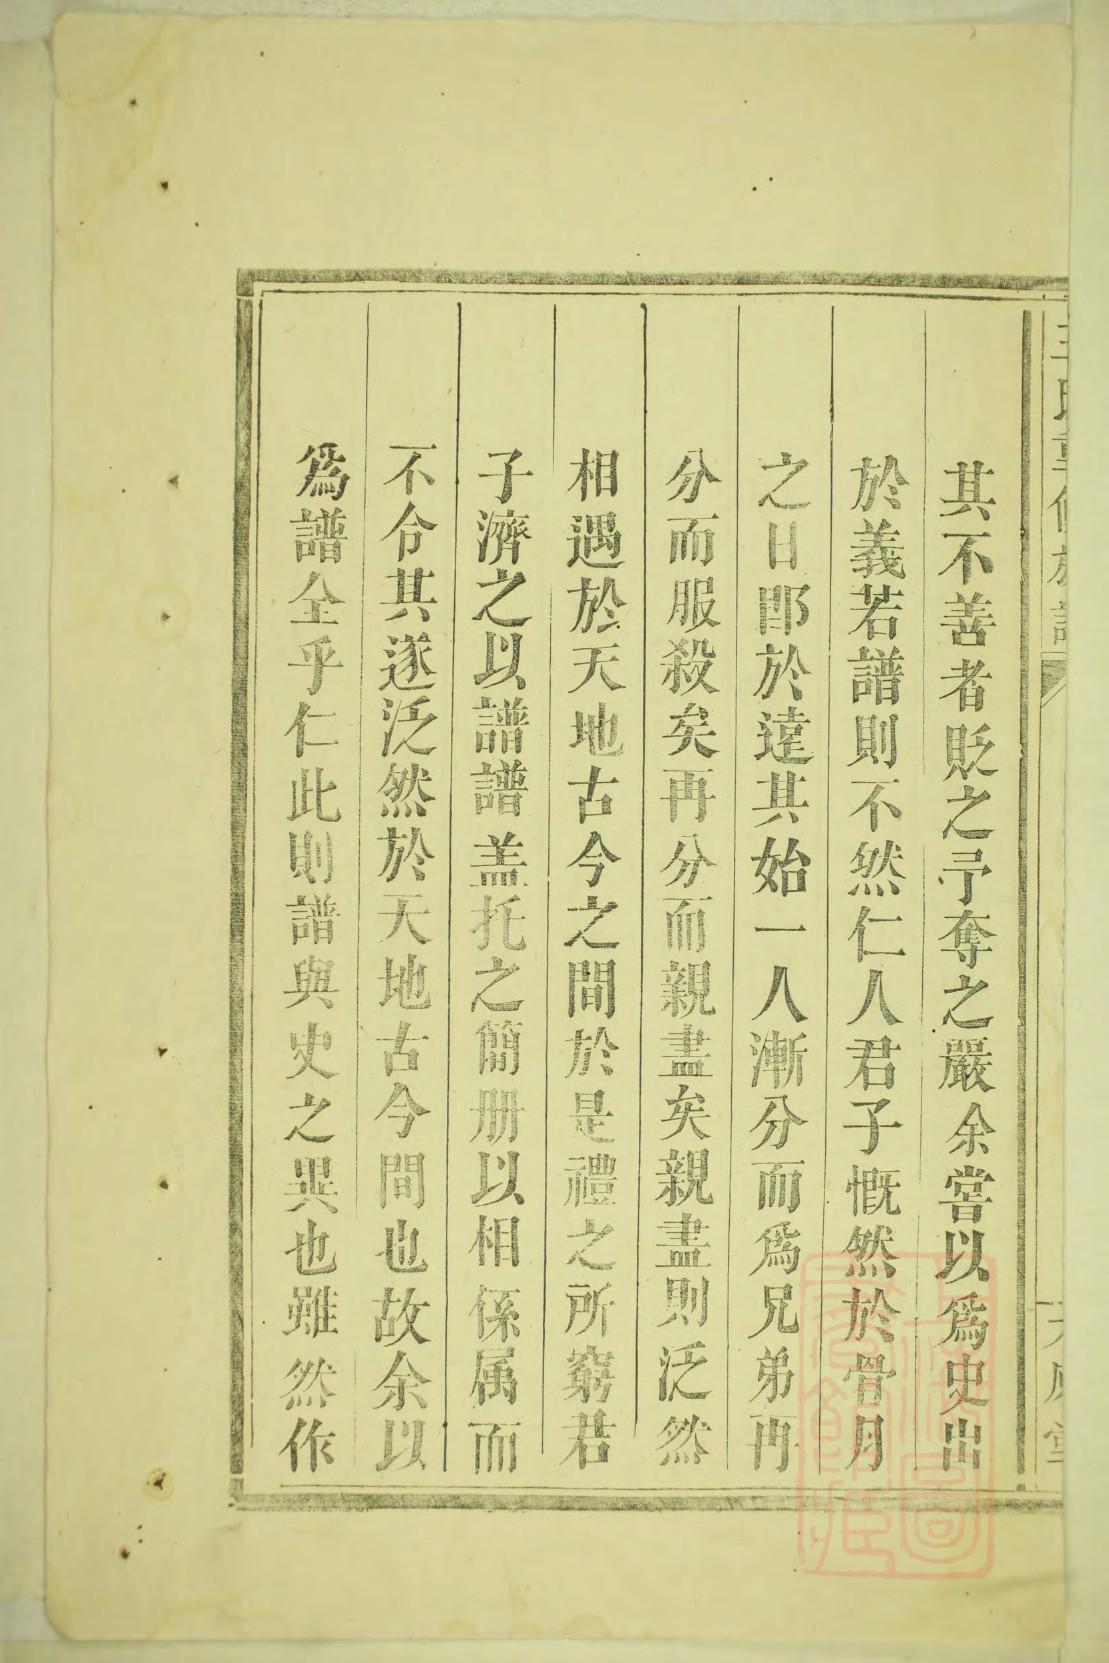 其不善者貶之予奪之嚴余嘗以爲史出
於義若譜則不然仁人君子慨然於骨月
之日卽於遠其始一人漸分而爲兄弟再
分而服殺矣再分而親盡矣親盡則泛然
相遇於天地古今之間於是禮之所窮君
子濟之以譜譜盖托之簡册以相係属而
不令其遂泛然於天地古今間也故余以
爲譜全乎仁此則譜與史之異也雖然作